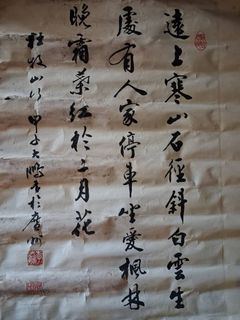 遠上寒山石徑斜白雲生
處有人家停車坐愛楓林
晚霜葉紅於二月花
杜牧山行甲子大鵬書於廣州